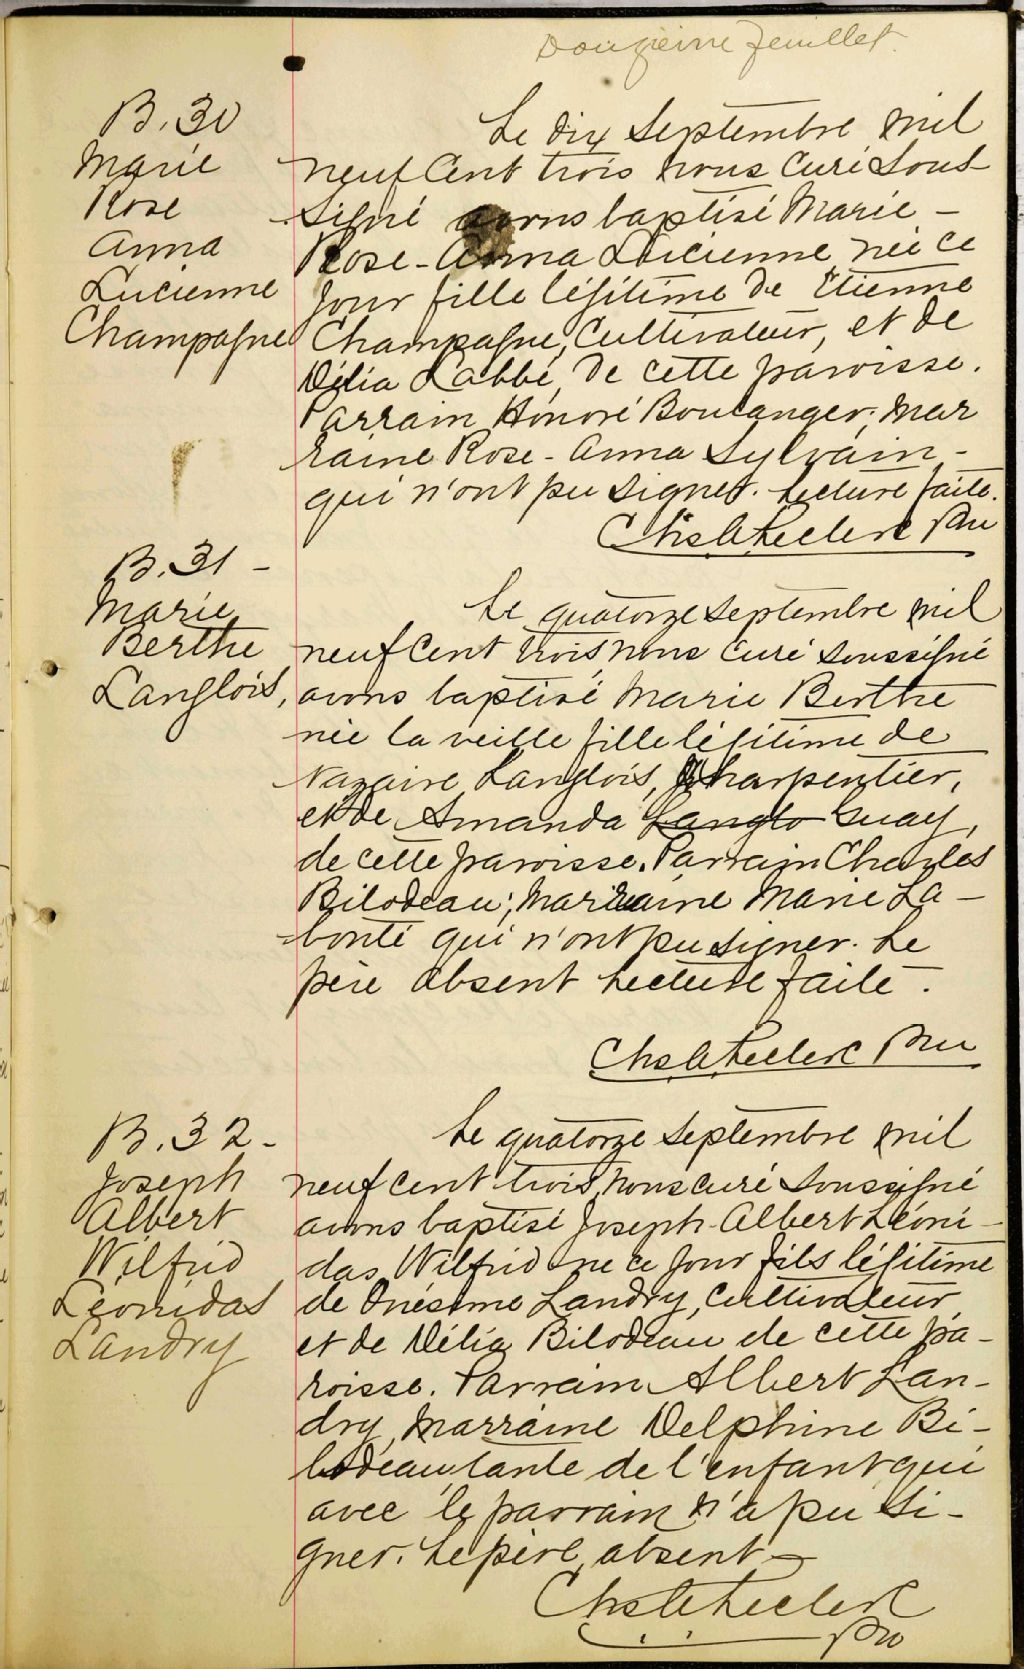 Douzième feuillet.
B. 30
Marie
Rose
Anna
Lucienne
Champagne
Le dix Septembre mil
neuf Cent trois nous Curé Sous-
signé avons baptisé Marie -
Rose-Anna Lucienne née ce
jour fille légitime de Etienne
Champagne, Cultivateur, et de
Délia Labbé, de cette paroisse.
Parrain Honoré Boulanger; mar
raine Rose-Anna Sylvain -
qui n'ont pu signer. Lecture faite.
Chs Leclerc Ptre
B. 31 -
Marie
Berthe
Langlois,
Le quatorze Septembre mil
neuf Cent trois nous Curé soussigné
avons baptisé Marie Berthe
née la veille fille légitime de
Nazaire Langlois, Charpentier,
et de Amanda Langlo Guay,
de cette paroisse. Parrain Charles
Bilodeau; Marraine Marie La -
bonté qui n'ont pu signer. Le
père absent Lecture faite -.
Chs Leclerc Ptre
B. 32 -
Joseph
Albert
Wilfrid
Léonidas
Landry
Le quatorze Septembre mil
neuf cent trois, nous curé soussigné
avons baptisé Joseph-Albert Léoni-
das Wilfrid né ce jour fils légitime
de Onésime Landry, Cultivateur,
et de Délia Bilodeau de cette pa-
roisse. Parrain Albert Lan-
dry, Marraine Delphine Bi-
lodeau, tante de l'enfant qui
avec le parrain n'a pu si-
gner. Le père, absent -
Chs Leclerc
Ptre